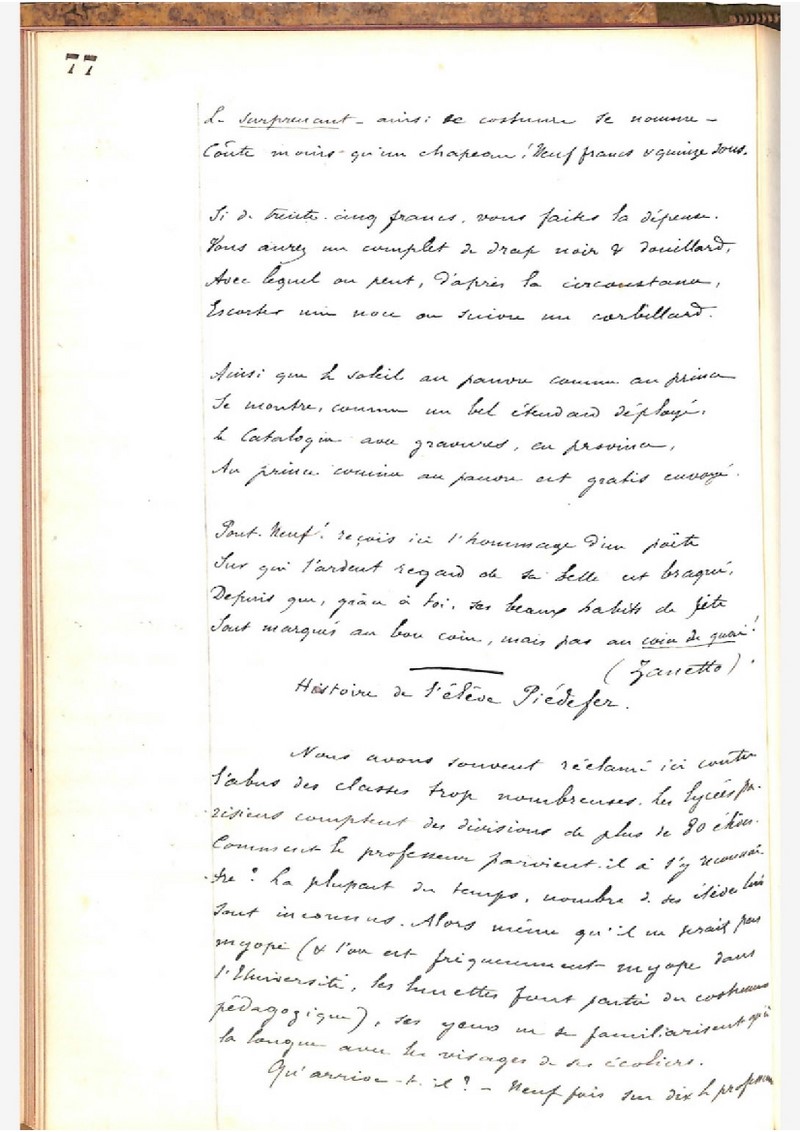 77
Le surprenant - ainsi ce costume se nomme -
Coûte moins qu'un chapeau! Neuf francs & quinze sous.
Si de trente-cinq francs, vous faites la dépense.
Vous aurez un complet de drap noir & douillard,
Avec lequel on peut, d'après la circonstance,
Escorter une noce ou suivre un corbillard.
Ainsi que le soleil au pauvre comme au prince
Se montre, comme un bel étendard déployé,
Le Catalogue avec gravures, en province,
Au prince comme au pauvre est gratis envoyé.
Pont-Neuf! reçois ici l'hommage d'un poëte
Sur qui l'ardent regard de sa belle est braqué,
Depuis que, grâce à toi, ses beaux habits de fête
Sont marqués au bon coin, mais pas au coin du quai!
(Zanetto).
Histoire de l'élève Piédefer.
Nous avons souvent réclamé ici contre
l'abus des classes trop nombreuses. Les lycées pa-
risiens comptent des divisions de plus de 80 élèves.
Comment le professeur parvient-il à s'y reconnaî-
tre? La plupart du temps, nombre de ses élèves lui
sont inconnus. Alors même qu'il ne serait pas
myope (& l'on est fréquemment myope dans
l'Université, les lunettes font partie du costume
pédagogique), ses yeux ne se familiarisent qu'à
la longue avec les visages de ses écoliers.
Qu'arrive-t-il? - Neuf fois sur dix le professeur